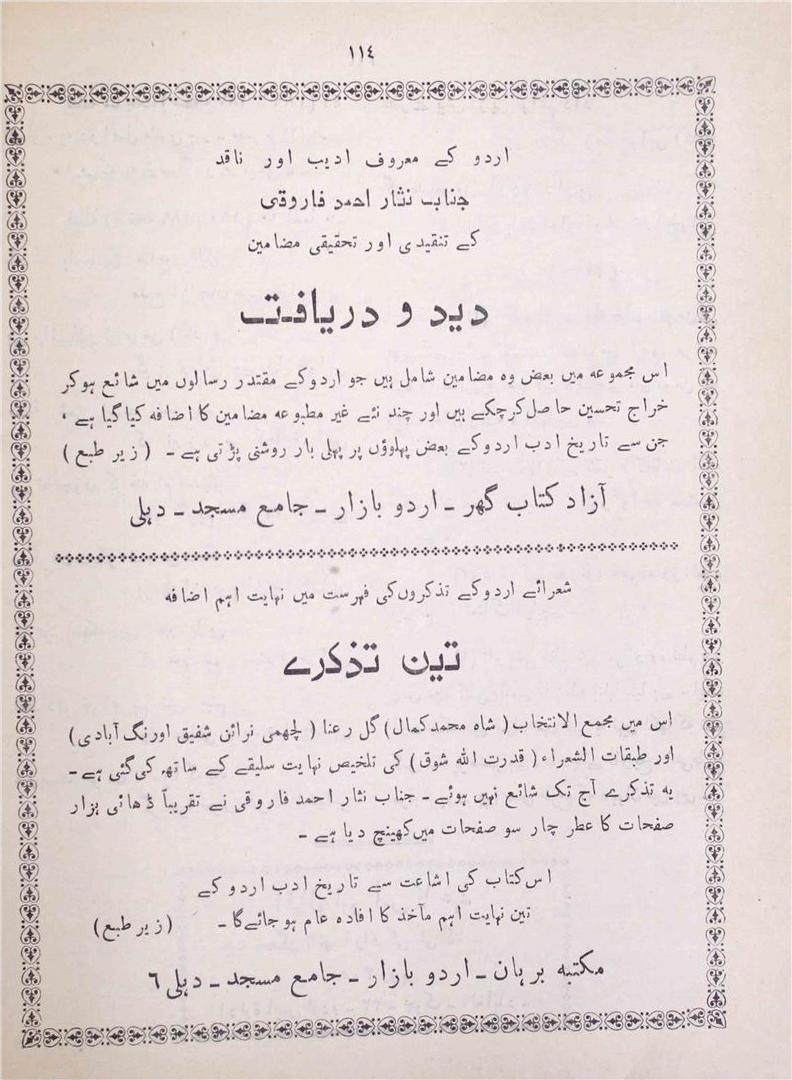 ۱۱٤
اردو کے معروف ادیب اور ناقد
جناب نثار احمد فاروقی
کے تنقیدی اور تحقیقی مضامین
دید و دریافت
اس مجموعہ میں بعض وہ مضامین شامل ہیں جو اردو کے مقتدر رسالوں میں شائع ہوکر
خراج تحسین حاصل کرچکے ہیں اور چند نئے غیر مطبوعہ مضامین کا اضافہ کیا گیا ہے ،
جن سے تاریخ ادب اردو کے بعض پہلوؤں پر پہلی بار روشنی پڑتی ہے ۔ ( زیر طبع )
آزاد کتاب گھر ۔ اردو بازار ۔ جامع مسجد ۔ دہلی
شعرائے اردو کے تذکروں کی فہرست میں نہایت اہم اضافہ
تین تذکرے
اس میں مجمع الانتخاب ( شاہ محمد کمال ) گل رعنا ( لچھمی نرائن شفیق اورنگ آبادی )
اور طبقات الشعراء ( قدرت اللہ شوق ) کی تلخیص نہایت سلیقے کے ساتھ کی گئی ہے ۔
یہ تذکرے آج تک شائع نہیں ہوئے ۔ جناب نثار احمد فاروقی نے تقریباً ڈھائی ہزار
صفحات کا عطر چار سو صفحات میں کھینچ دیا ہے ۔
اس کتاب کی اشاعت سے تاریخ ادب اردو کے
تین نہایت اہم مآخذ کا افادہ عام ہو جائے گا ۔ ( زیر طبع )
مکتبہ برہان ۔ اردو بازار ۔ جامع مسجد ۔ دہلی ٦